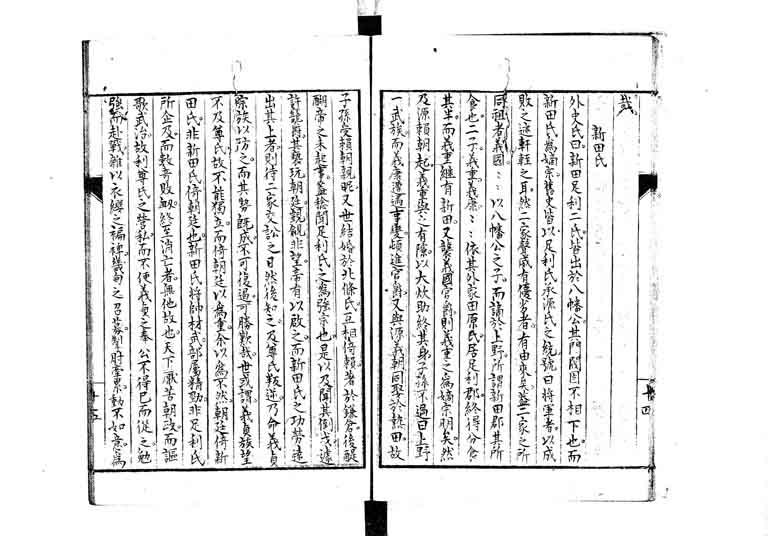 哉
新田氏
外史氏曰新田足利二氏皆出於八幡公其門閥固不相下也而
新田氏為嫡宗舊史皆以足利氏承源氏之統號曰將軍者以成
敗之迹軒輊之耳然二家聲威有優劣者有由來矣蓋二家之所
同祖者義國義國以八幡公之子而謫於上野所謂新田郡其所
食也二子義重義康義康依其外家田原氏居足利郡終得分食
其半而義重繼有新田又襲義國官爵則義重之為嫡宗明矣然
及源賴朝起義重與之有隙以大炊助終其身子孫不過曰上野
一武族而義康遭遇事變頻進官爵又與源義朝同娶於熱田故
子孫受賴朝親昵又世結婚於北條氏互相倚賴著於鎌倉後醍
醐帝之未起事蓋稔聞足利氏之為強宗也是以及聞其倒戈遽
許龍爵其褻玩朝廷覬覦非望帝有以啟之而新田氏之功勞遠
出其上者則待二家交訟之日然後知之及尊氏叛逆乃命義貞
宗族以防之而其勢既成不可復遏可勝歎哉世或謂義貞族望
不及尊氏故不能獨立而倚朝廷以為重余以為不然朝廷倚新
田氏非新田氏倚朝廷也新田氏將帥材武部屬精勁非足利氏
所企及而數奇敗衄終至滴亡者無他故也天下厭苦朝政而謳
歌武治故利尊氏之營私而不便義貞之奉公不得已而從之勉
強而赴戰雜以衣纓之褊裨畿甸之召募掣肘雲累動不如意為